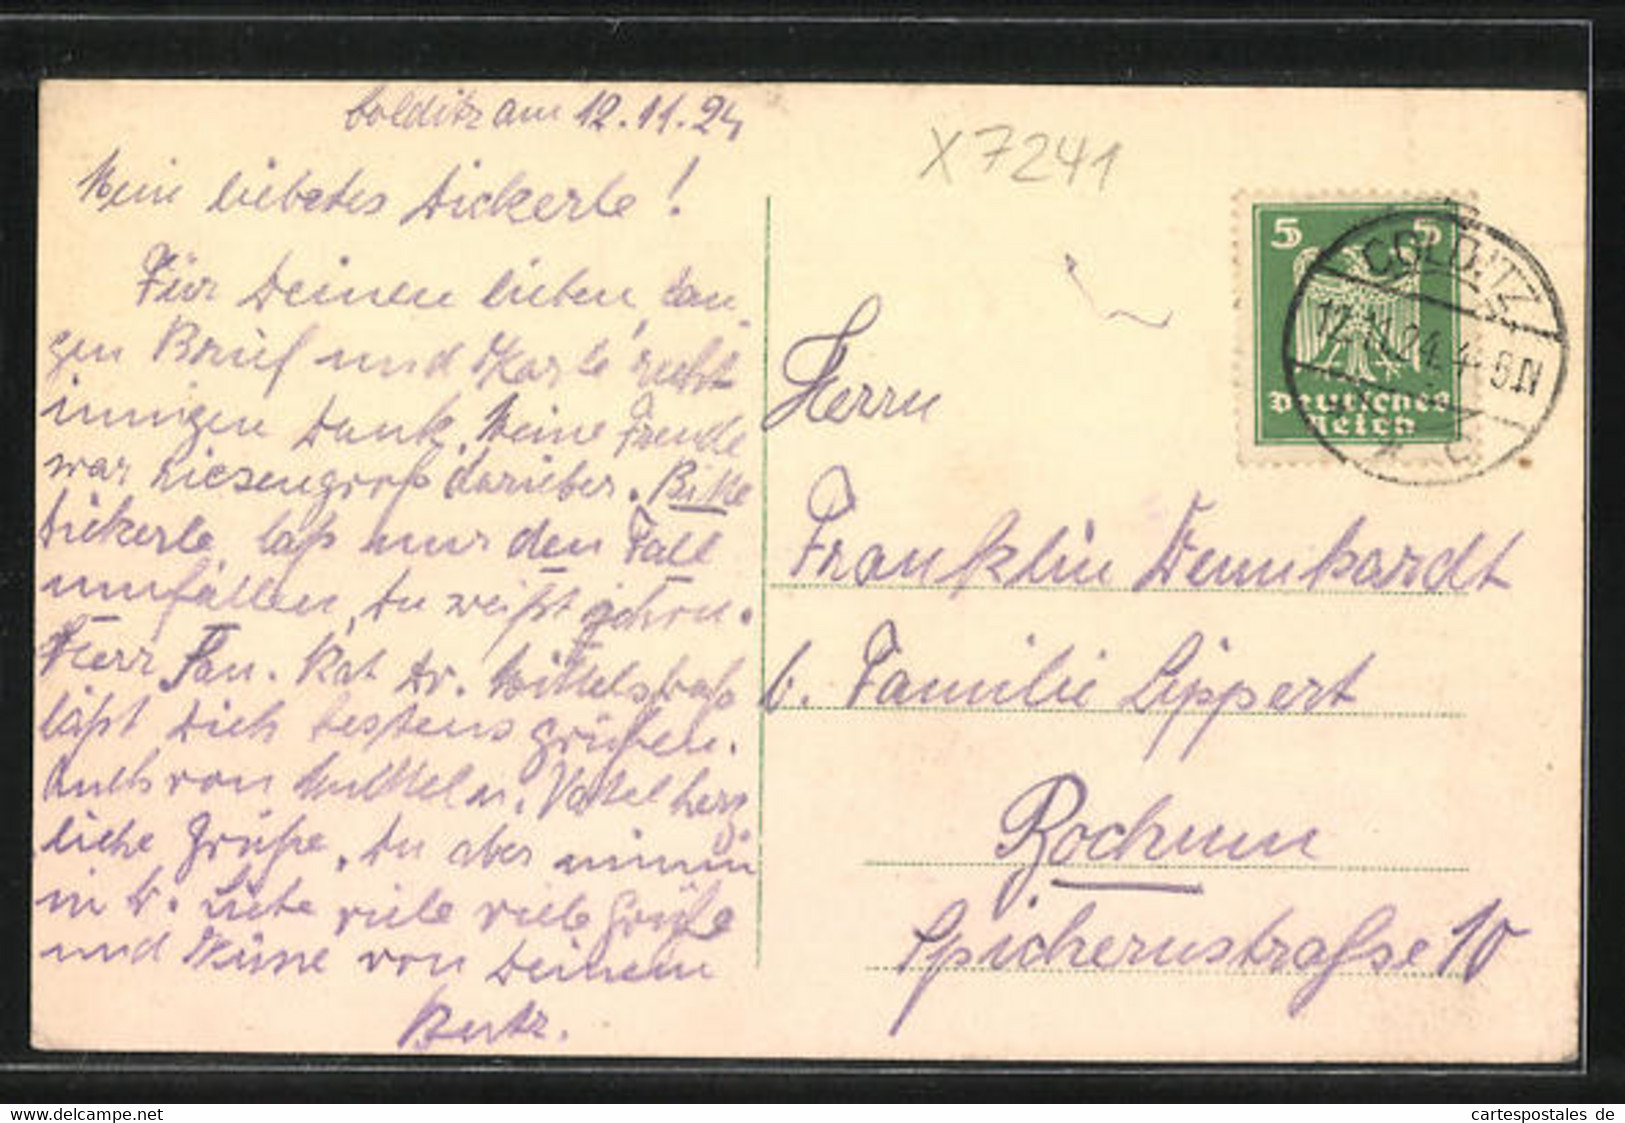 Colditz am 12.11.24
Mein liebstes Dickerle!
Für Deinen lieben, lan-
gen Brief und Karte recht
innigen Dank. Meine Freude
war riesengroß darüber. Bitte
Dickerle, laß nur den Fall
umfallen, Du weißt schon.
Herr San. Rat Dr. Mittelstraß
läßt Dich bestens grüßen.
Auch von Muttel u. Vatel herz-
liche Grüße. Du aber nimm
in tr. Liebe viele viele Grüße
und Küsse von Deinem
X7241
5 5
Deutsches
Reich
COLDITZ
12.11.24. 4-5 N
Herrn
Franklin Dennhardt
b. Familie Lippert
Bochum
Spichernstraße 10
www.delcampe.net
cartespostales de